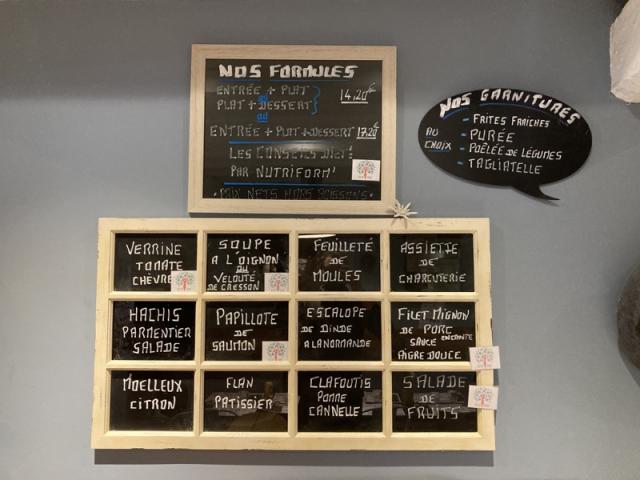 NOS FORMULES
ENTRÉE + PLAT
ou
PLAT + DESSERT
14,20€
ou
ENTRÉE + PLAT + DESSERT 17,20€
LES CONSEILS DIET'
PAR NUTRIFORM'
• PRIX NETS HORS BOISSONS •
NOS GARNITURES
AU CHOIX
- FRITES FRAÎCHES
- PURÉE
- POÊLÉE DE LÉGUMES
- TAGLIATELLE
VERRINE
TOMATE
CHÈVRE
SOUPE
A L'OIGNON
OU
VELOUTÉ
DE CRESSON
FEUILLETÉ
DE
MOULES
ASSIETTE
DE
CHARCUTERIE
HACHIS
PARMENTIER
SALADE
PAPILLOTE
DE
SAUMON
ESCALOPE
DE DINDE
A LA NORMANDE
FILET MIGNON
DE PORC
SAUCE
AIGRE DOUCE
MOELLEUX
CITRON
FLAN
PATISSIER
CLAFOUTIS
POMME
CANNELLE
SALADE
DE
FRUITS